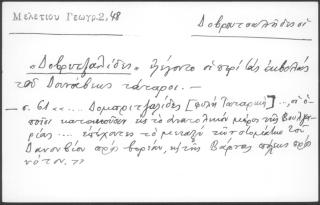 Μελετίου Γεωγρ. 2, 48
Δοβρουτσαλῆδες οἱ
"Δοβρυτζαλίδες" λέγονται οἱ περὶ τὰς ἐκβολὰς
τοῦ Δανάβεως τάταροι. —
— σ. 61 <<.... Δομπριτζαλίδες [φυλὴ Ταταρικὴ] .., οἱ ὁ-
ποῖοι κατοικοῦσιν εἰς τὸ ἀνατολικὸν μέρος τῆς Βουλγα-
ρίας .... ἐπέχοντες τὸ μεταξὺ τῶν στομάτων τοῦ
Δανουβίου πρὸς βορρᾶν, κ(αὶ) τῆς Βάρνας πόλεως πρὸς
νότον. >>